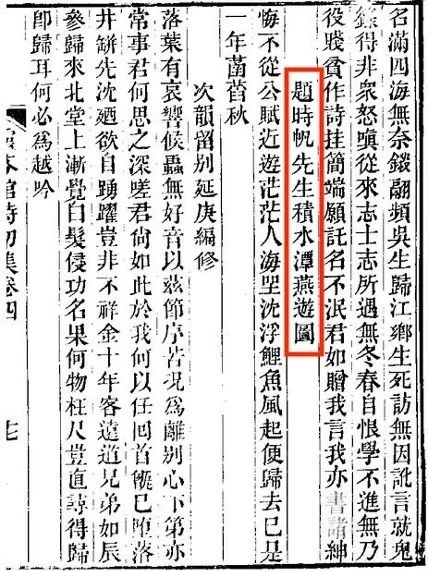 名滿四海無奈鎩翮頻吳生歸江鄉生死訪無因訛言就鬼
錄得非衆怒嗔從來志士志所遇無冬春自恨學不進無乃
役賤貧作詩挂簡端願託名不泯君如贈我言我亦書諸紳
題時帆先生積水潭燕遊圖
悔不從公賦近遊茫茫人海坐沈浮鯉魚風起便歸去已是
一年菡萏秋
次韻留别延庚編修
落葉有哀響候蟲無好音以茲節序苦況爲離别心下第亦
常事君何思之深嗟君尙如此於我何以任囘首儂已堕落
井缾先沈廼欲自踴躍豈非不祥金十年客遠道兄弟如辰
參歸來北堂上漸覺白髮侵功名果何物枉尺豈直尋得歸
卽歸耳何必爲越吟
館詩初集卷四